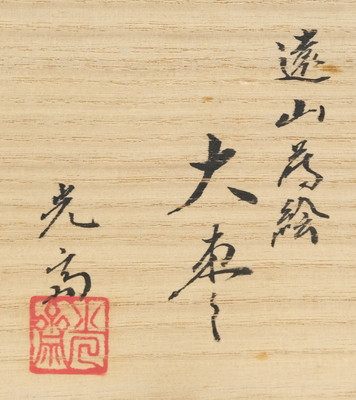 遠山蒔絵
大棗
光斎